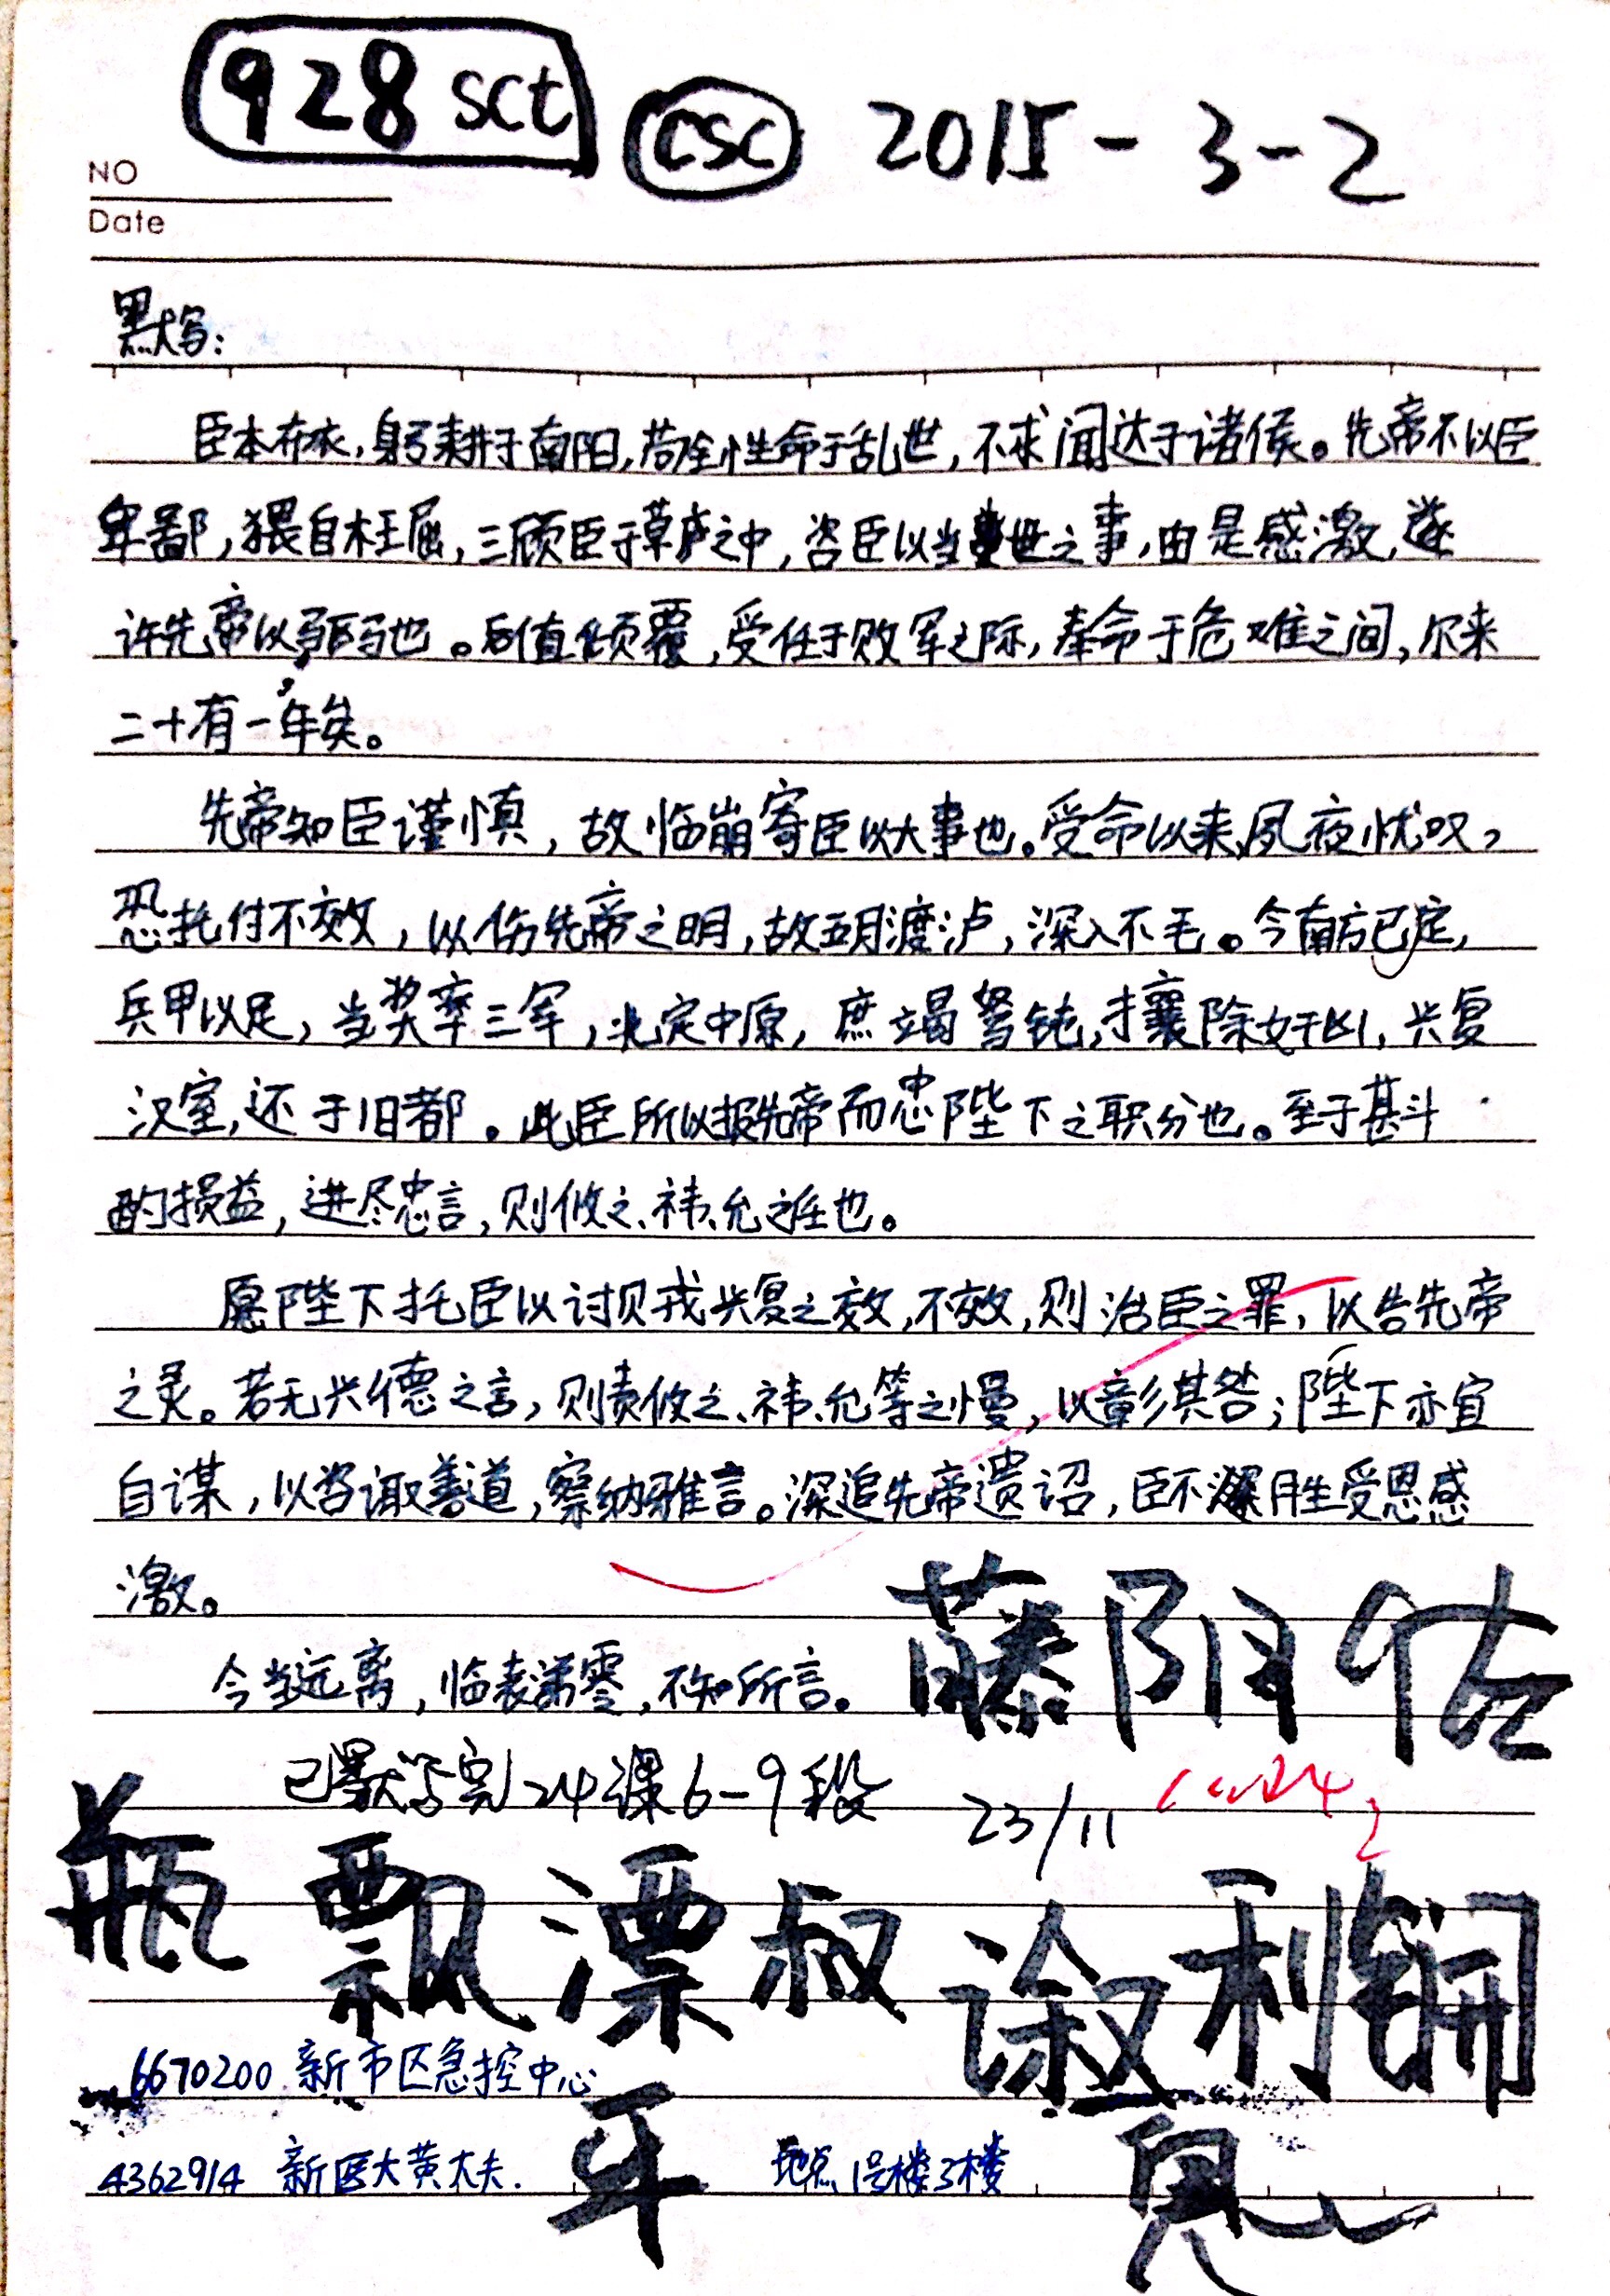 928 sct csc 2015-3-2
NO
Date
默写:
臣本布衣,躬耕于南阳,苟全性命于乱世,不求闻达于诸侯。先帝不以臣
卑鄙,猥自枉屈,三顾臣于草庐之中,咨臣以当世之事,由是感激,遂
许先帝以驱驰也。后值倾覆,受任于败军之际,奉命于危难之间,尔来
二十有一年矣。
先帝知臣谨慎,故临崩寄臣以大事也。受命以来,夙夜忧叹,
恐托付不效,以伤先帝之明,故五月渡泸,深入不毛。今南方已定,
兵甲以足,当奖率三军,北定中原,庶竭驽钝,攘除奸凶,兴复
汉室,还于旧都。此臣所以报先帝而忠陛下之职分也。至于甚斗
酌损益,进尽忠言,则攸之、祎、允之任也。
愿陛下托臣以讨贝戎兴复之效,不效,则治臣之罪,以告先帝
之灵。若无兴德之言,则责攸之、祎、允等之慢,以彰其咎;陛下亦宜
自谋,以咨诹善道,察纳雅言。深追先帝遗诏,臣不胜受恩感
激。
今当远离,临表涕零,不知所言。
藤阴佐
已默写完24课6-9段 23/11
瓶飘漂叔
利
6670200 新市区急控中心
4362914 新医大黄大夫. 牙 地点 1号楼3楼